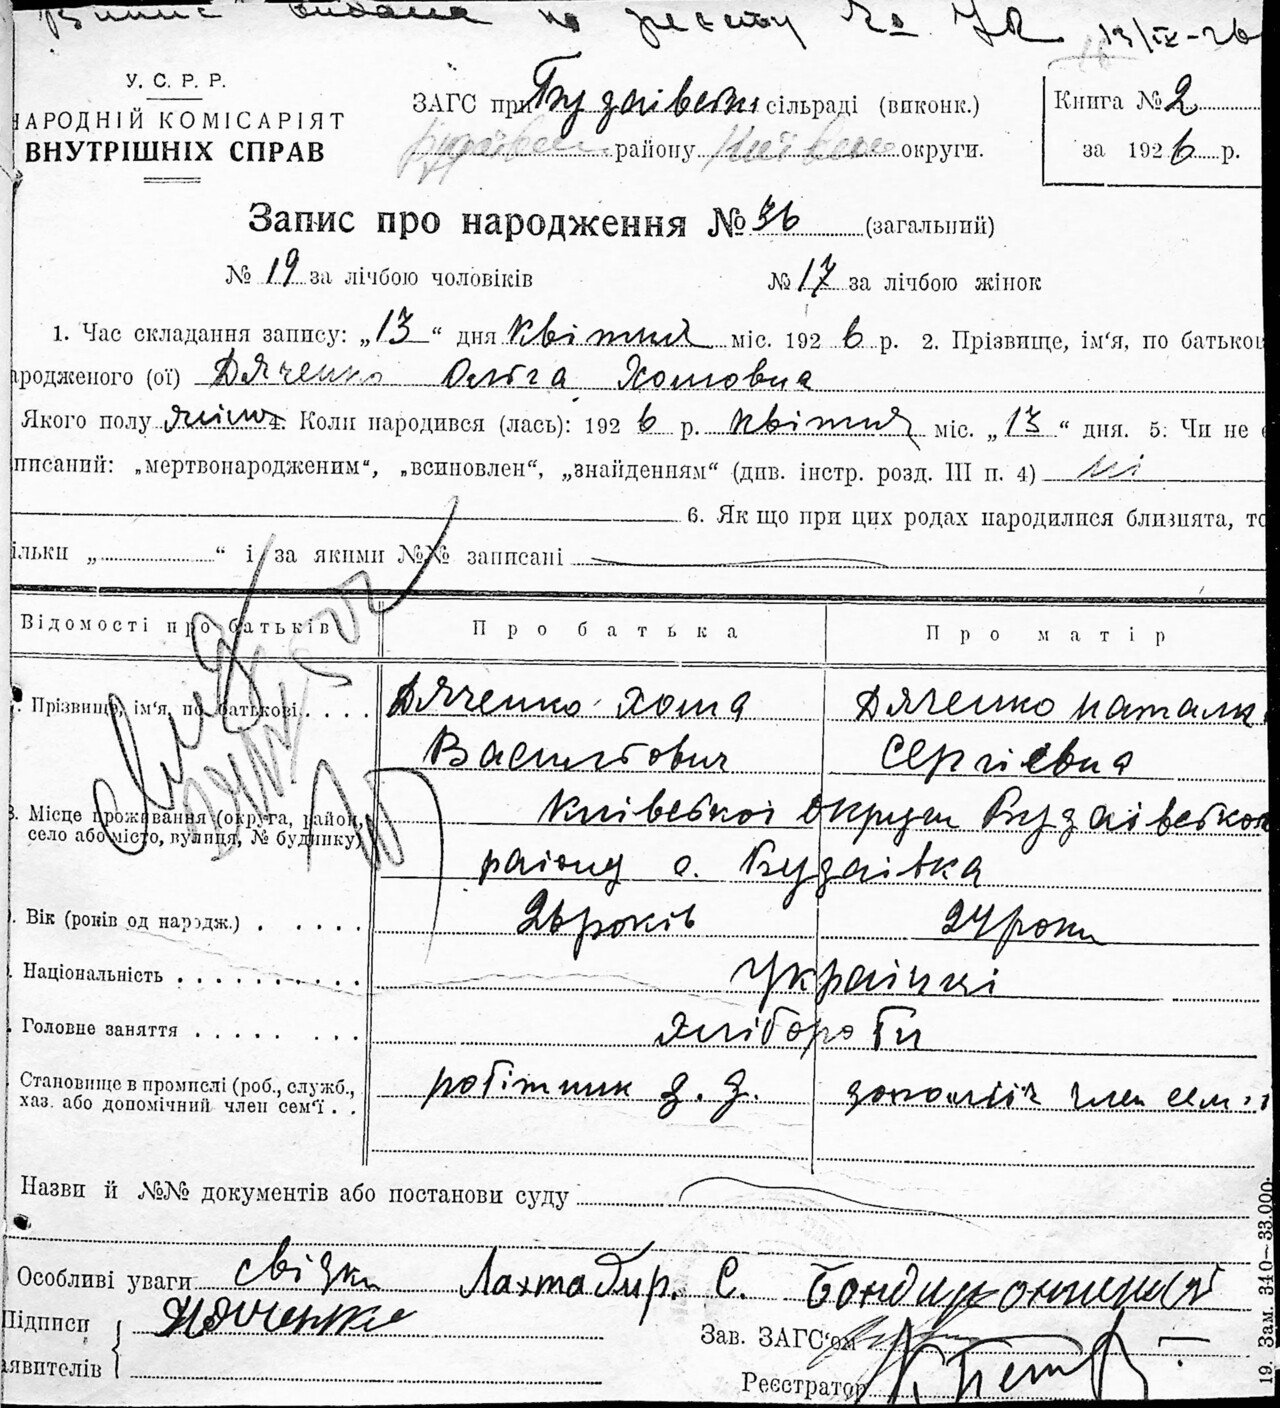 Випис видана по реєстру № 72 13/IX-26
У. С. Р. Р.
НАРОДНІЙ КОМІСАРІЯТ
ВНУТРІШНІХ СПРАВ
ЗАГС при Будаївськ. сільраді (виконк.)
Будаївськ. району Київськ. округи.
Книга № 2
за 1926 р.
Запис про народження № 36 (загальний)
№ 19 за лічбою чоловіків № 17 за лічбою жінок
1. Час складання запису: „13“ дня Квітня міс. 1926 р. 2. Прізвище, ім'я, по батькові
ародженого (ої) Дяченко Ольга Хомовна
Якого полу жіноч. 4. Коли народився (лась): 1926 р. Квітня міс. „13“ дня. 5. Чи не є
писаний: „мертвонародженим“, „всиновлен“, „знайденням“ (див. інстр. розд. III п. 4) ні
6. Як що при цих родах народилися близнята, то
ільки „ “ і за якими №№ записані
Відомості про батьків Про батька Про матір
Прізвище, ім'я, по батькові Дяченко Хома Дяченко Наталка
Васильович Сергієвна
8. Місце проживання (округа, район, Київської Округи Будаївського
село або місто, вулиця, № будинку) району с. Будаївка
Вік (років од народж.) 26 років 24 роки
Національність Українці
Головне заняття Хлібороби
Становище в промислі (роб., служб., робітник з. д. допоміж член сем'ї
хаз. або допомічний член сем'ї
Назви й №№ документів або постанови суду
Особливі уваги свідки Лахтадир. С.
Підписи Дяченко
аявителів
Зав. ЗАГС'ом
Реєстратор
19. Зам. 340—33.000.